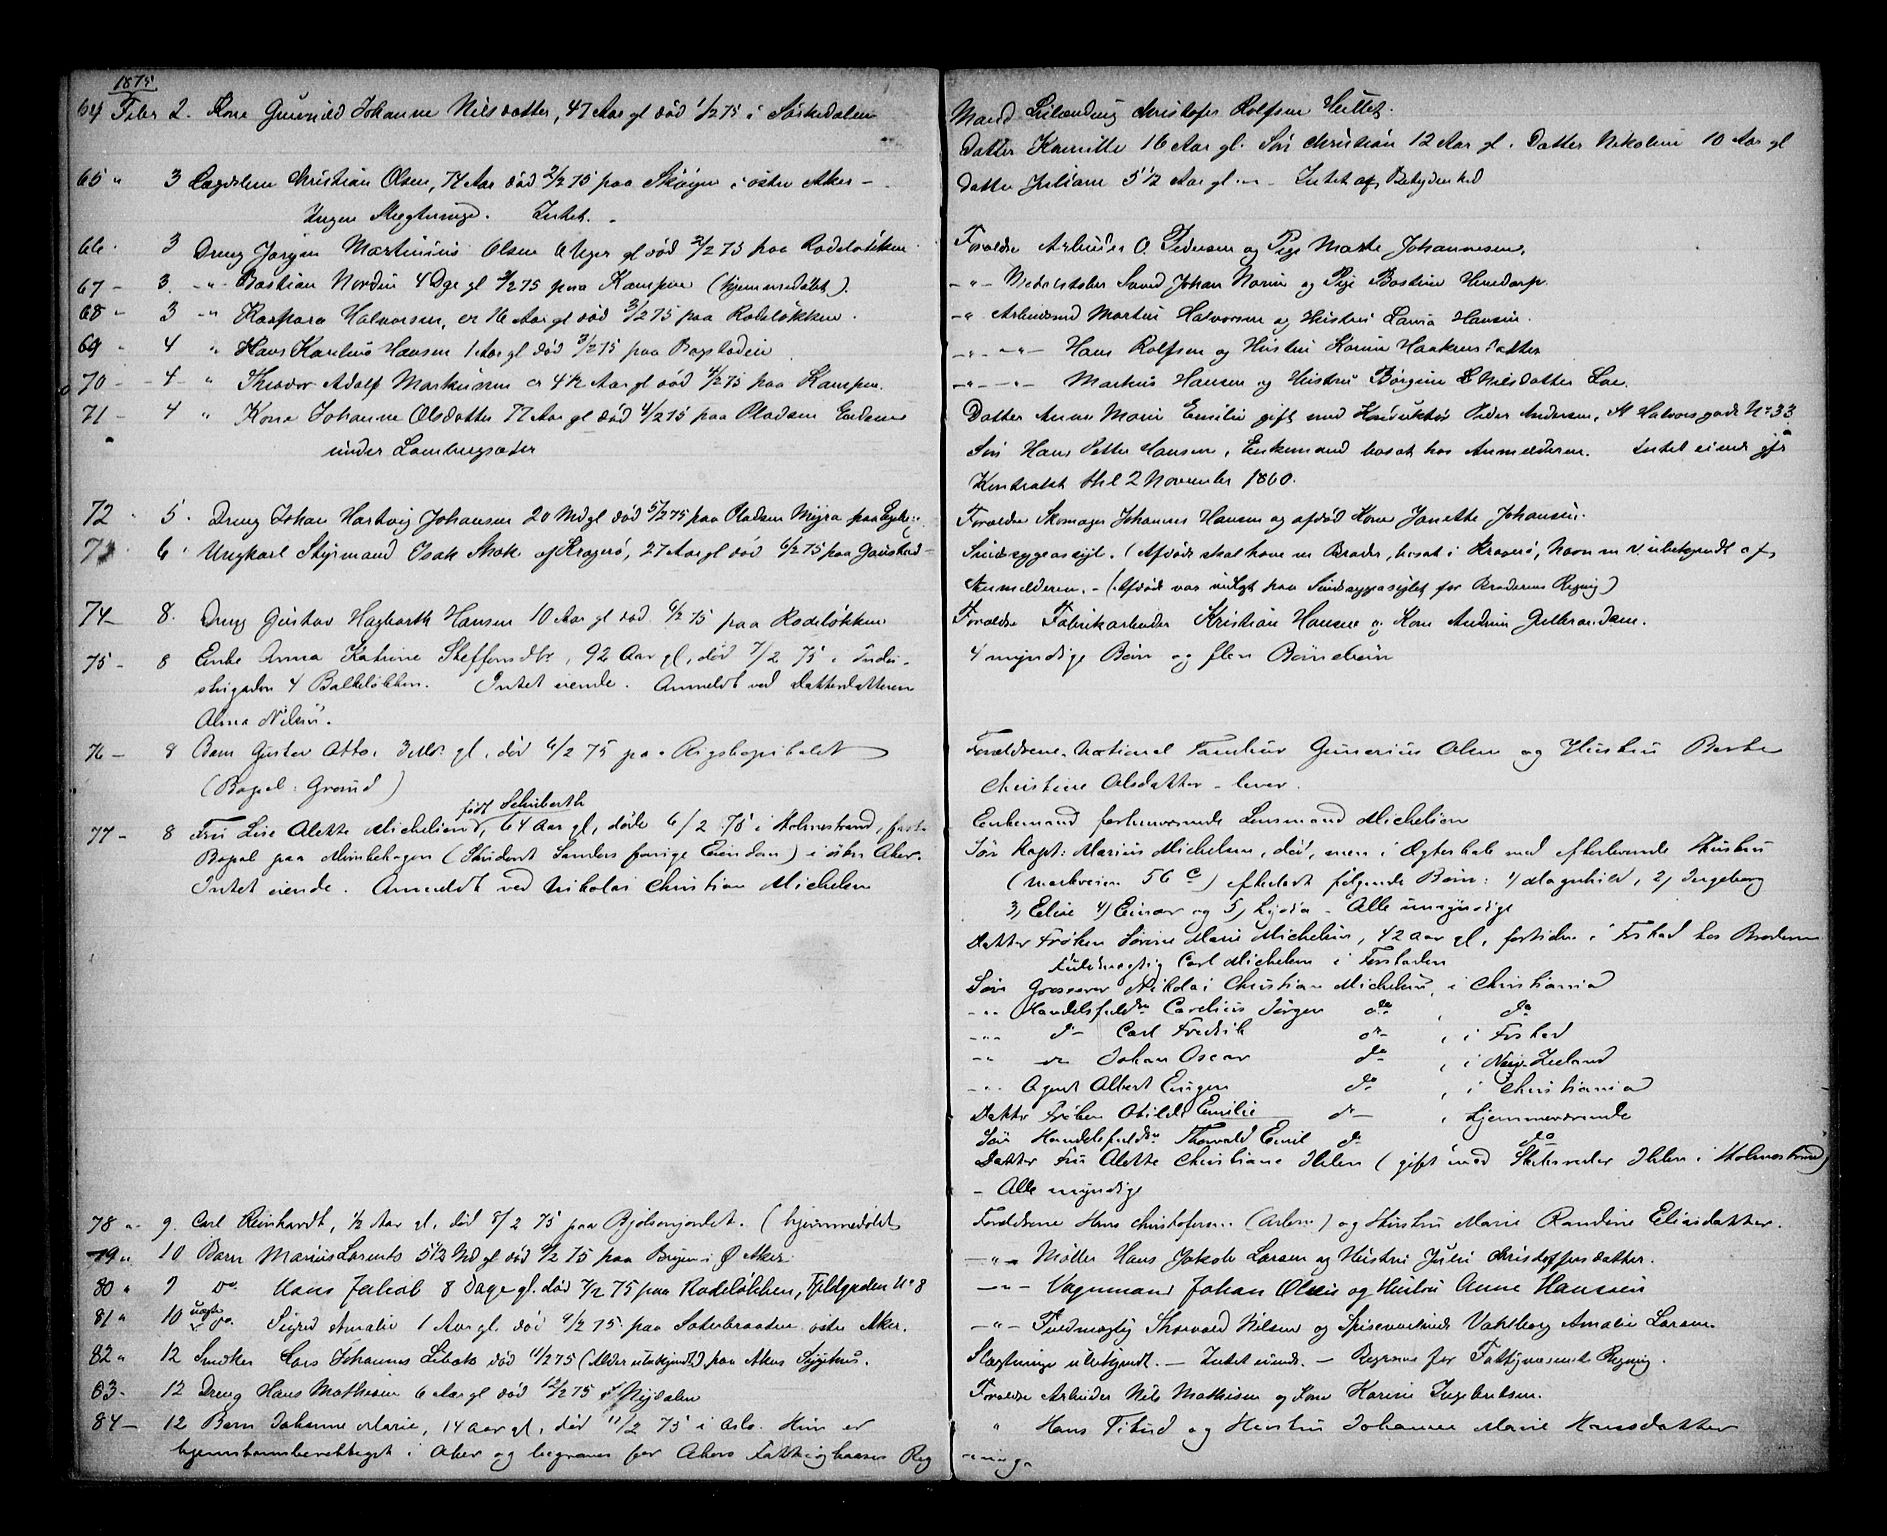 1875
64 Febr 2. Kone Gunnild Johanne Nilsdatter, 47 Aar gl død 1/2 75 i Sørkedalen
Mand Christofer Rolfsen
Datter Kamille 16 Aar gl. Søn Christian 12 Aar gl. Datter Nikoline 10 Aar gl
65 " 3 Lægdslem Christian Olsen, 74 Aar død 2/2 75 paa Skøyen i østre Aker -
Datter Juliane 5 1/2 Aar gl. - Intet af Betydenhed
Ingen Slægtninge. Intet.
66 3 Dreng Jørgen Martinius Olsen 6 Uger gl død 2/2 75 paa Rodeløkken
Forældre Arbeider O. Pedersen og Pige Marte Johannesen.
67 - 3. -"- Bastian Nordin 4 Dge gl 2/2 75 paa Kampen (hjemmedøbt).
-"- Johan Norin og Pige Bastine
68 - 3 -"- Kaspara Halvorsen, er 16 Aar gl død 3/2 75 paa Rodeløkken.
-"- Arbeidsmd Martin Halvorsen og Hustru Lovisa Hansen.
69 - 4 " Hans Karelius Hansen 1 Aar gl død 3/2 75 paa Bogstadeie
-"- -"- Hans Rolfsen og Hustru Karen Haakensdatter
70 - 4 " Theodor Adolf Markussen er 4 1/2 Aar gl død 4/2 75 paa Kampen.
-"- -"- Markus Hansen og Hustru Børgine Nilsdatter Lae.
71 - 4 " Kone Johanne Olsdatter 77 Aar gl død 4/2 75 paa Pladsen Enden
Datter Anne Marie Emilie gift med Konduktør Peder Andersen, St Halvorsgade No 33
under Lambergsæter
Søn Hans Petter Hansen, Enkemand bosat hos Anmelderen. Intet eiende gfr
Kontrakt thl 2 November 1860.
72 - 5. Dreng Johan Hartvig Johansen 20 Md gl død 5/2 75 paa Pladsen Myra paa
Forældre Skomager Johannes Hansen og afdød Kone Janette Johansen.
73 6 Ungkarl Styrmand Isak Skak af Kragerø, 27 Aar gl død 6/2 75 paa Gaustad
Sindssygeasyl. (Afdøde skal have en Broder, bosat i Kragerø, Navn m. v. ubekjendt af
Anmelderen. - (Afdøde var indlagt paa Sindssygeasylet for Broderens Regning)
74 - 8. Dreng Gustav Hagbarth Hansen 10 Aar gl død 6/2 75 paa Rodeløkken
Forældre Fabrikarbeider Kristian Hansen og Kone Andrine Gulbrandsen.
75 - 8 Enke Anna Katrine Steffensdtr, 92 Aar gl, død 7/2 75 i Indu-
4 myndige Børn og flere Børnebørn
strigaden 4 Balkeløkken. Intet eiende. Anmeldt ved Datterdatteren
Alma Nilsen.
76 - 8 Barn Gustav Otto, 3 Mdr gl, død 6/2 75 paa Rigshospitalet
Forældrene National Tambur Gunerius Olsen og Hustru Berthe
(Bopæl: Grønd)
Christine Olsdatter - lever.
født Schuberth
77 - 8 Fru Lise Alette Michelsen, 64 Aar gl, døde 6/2 75 i Holmestrand, fast
Enkemand forhenværende Lensmand Michelsen
Bopæl paa Munkehagen (Student Sanders forrige Eiendom) i østre Aker.
Søn Kapt: Marius Michelsen, død, men i Ægteskab med efterlevende Hustru
Intet eiende. Anmeldt ved Nikolai Christian Michelsen
(Markveien 56 c) efterladt følgende Børn: 1) Magnhild, 2) Ingeborg
3) Elise 4) Einar og 5) Lydia - Alle umyndige
Datter Frøken Sørine Marie Michelsen, 42 Aar gl, fortiden i Frstad hos Broderen
Fuldmægtig Carl Michelsen i Fredrstaden
Søn Grosserer Nikolai Christian Michelsen, i Christiania
-"- Handelsfuldm Carelius Jørgen do , do
-"- do Carl Fredrik do , i Frstad
-"- do Johan Oscar do , i New Zeeland
-"- Agent Albert Eugen do , i Christiania
Datter Frøken Otilde Emilie do , hjemmeværende
Søn Handelsfuldm Thorvald Emil do do
Datter Fru Alette Christiane Ihlen (gift med Ihlen i Holmestrand)
- Alle myndige
78 " 9. Carl Reinhardt, 1/2 Aar gl, død 8/2 75 paa Bjølsenjordet. (hjemmedøbt
Forældrene Hans Christofersen (Arbm) og Hustru Marie Randine Eliasdatter.
79 " 10 Barn Marius Lorents 5 1/2 Md gl død 9/2 75 paa Bryn i Ø Aker
-"- Møller Hans Jakob Larsen og Hustru Julie Christoffersdatter.
80 " 9 do Hans Jakob 8 Dage gl. død 7/2 75 paa Rodeløkken, Fjeldgaden No 8
-"- Vognmand Johan Olsen og Hustru Anne Hansen
81 " 10 uægte do. Sigrid Amalie 1 Aar gl død 9/2 75 paa Soterbraaten østre Aker.
-"- Fuldmægtig Thorvald Nilsen og Vahlborg Amalie Larsen.
82 " 12 Snedker Lars Johannes Libak død 11/2 75 (Alder ubekjendt) paa Akers Sygehus.
Slægtninge ubekjendt. - Intet eiende. - Begraves for Fattigvæsenets Regning.
83 - 12 Dreng Hans Mathisen 6 Aar gl død 12/2 75 i Nydalen
Forældre Arbeider Nils Mathisen og Kone Karine Ingebretsen.
84 - 12 Barn Johanne Marie, 14 Aar gl, død 11/2 75 i Oslo. Hun er
" Hans Tilrud og Hustru Johanne Marie Hansdatter
hjemstavnsberettiget i Aker og begraves for Akers Fattigkasses Reg
ning.